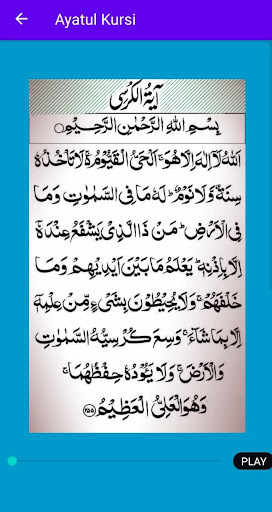 Ayatul Kursi
آيَةُ الْكُرْسِى
بِسْمِ اللهِ الرَّحْمٰنِ الرَّحِيْمِ
اَللهُ لَآ اِلٰهَ اِلَّا هُوَ ۚ اَلْحَىُّ الْقَيُّوْمُ ۚ لَا تَاْخُذُهٗ
سِنَةٌ وَّلَا نَوْمٌ ؕ لَهٗ مَا فِى السَّمٰوٰتِ وَمَا
فِى الْاَرْضِ ؕ مَنْ ذَا الَّذِىْ يَشْفَعُ عِنْدَهٗۤ
اِلَّا بِاِذْنِهٖ ؕ يَعْلَمُ مَا بَيْنَ اَيْدِيْهِمْ وَمَا
خَلْفَهُمْ ۚ وَلَا يُحِيْطُوْنَ بِشَىْءٍ مِّنْ عِلْمِهٖۤ
اِلَّا بِمَا شَآءَ ۚ وَسِعَ كُرْسِيُّهُ السَّمٰوٰتِ
وَالْاَرْضَ ۚ وَلَا يَـُٔوْدُهٗ حِفْظُهُمَا ۚ
وَهُوَ الْعَلِىُّ الْعَظِيْمُ ﴿۲۵۵﴾
PLAY